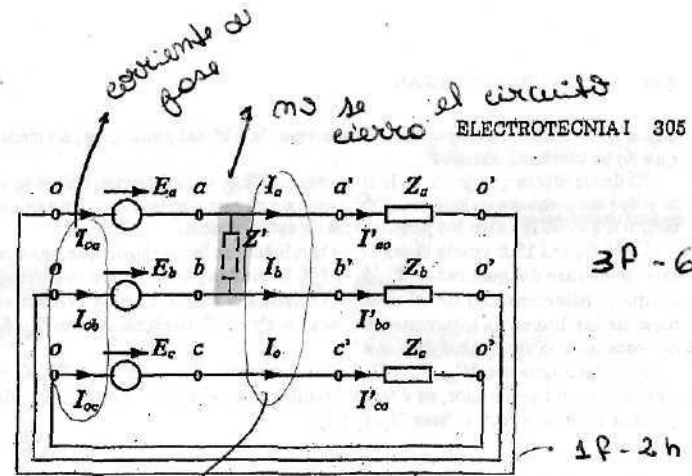 corriente de
fase
no se
cierra el circuito
ELECTROTECNIA I 305
o E_a a I_a a' Z_a o'
I_oa Z' I'_ao
o E_b b I_b b' Z_b o'
3f - 6
I_ob I'_bo
o E_c c I_c c' Z_c o'
I_oc I'_co
1f - 2h